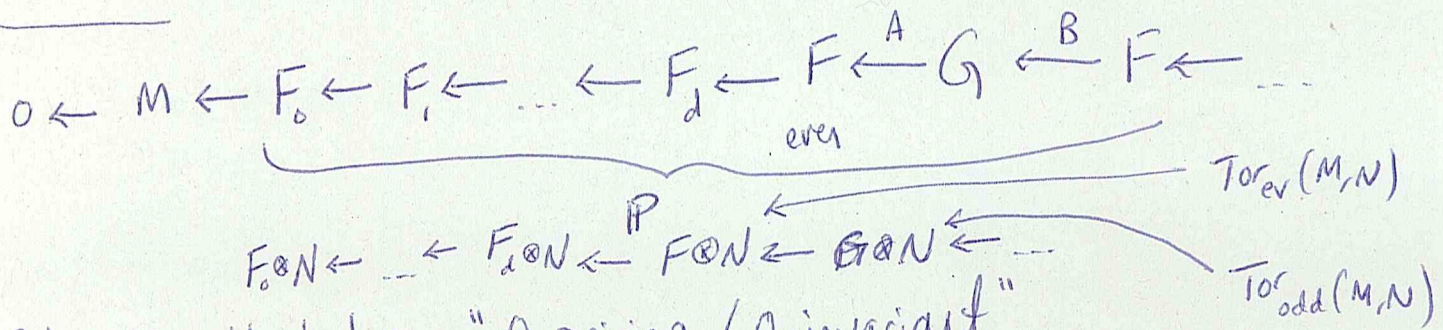 0 ← M ← F₀ ← F₁ ← ... ← F_d ← F ←A G ←B F ← ...
even
P
Tor_ev(M,N)
F₀⊗N ← ... ← F_d⊗N ← F⊗N ← G⊗N ← ...
Tor_odd(M,N)